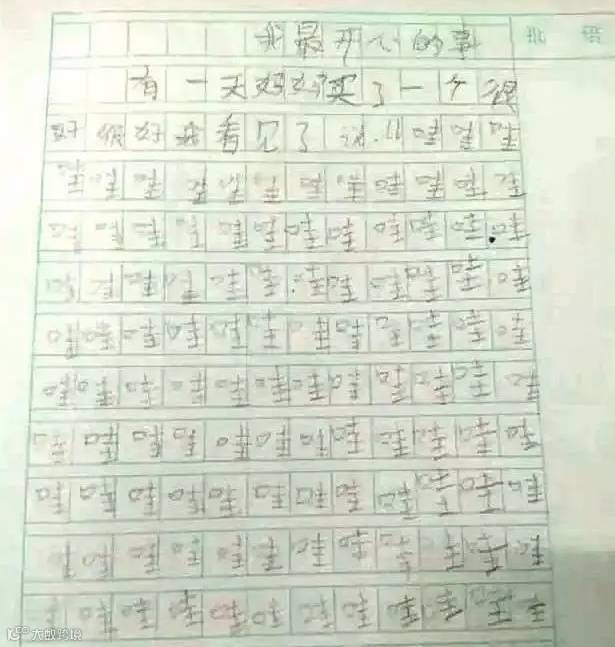 我最开心的事
有一天妈妈买了一个很
好很好我看见了说!!哇哇哇
哇哇哇哇哇哇哇哇哇哇哇哇
哇哇哇哇哇哇哇哇哇哇哇哇
哇哇哇哇哇哇哇哇哇哇哇哇
哇哇哇哇哇哇哇哇哇哇哇哇
哇哇哇哇哇哇哇哇哇哇哇哇
哇哇哇哇哇哇哇哇哇哇哇哇
哇哇哇哇哇哇哇哇哇哇哇哇
哇哇哇哇哇哇哇哇哇哇哇哇
哇哇哇哇哇哇哇哇哇哇哇哇
大数跨境